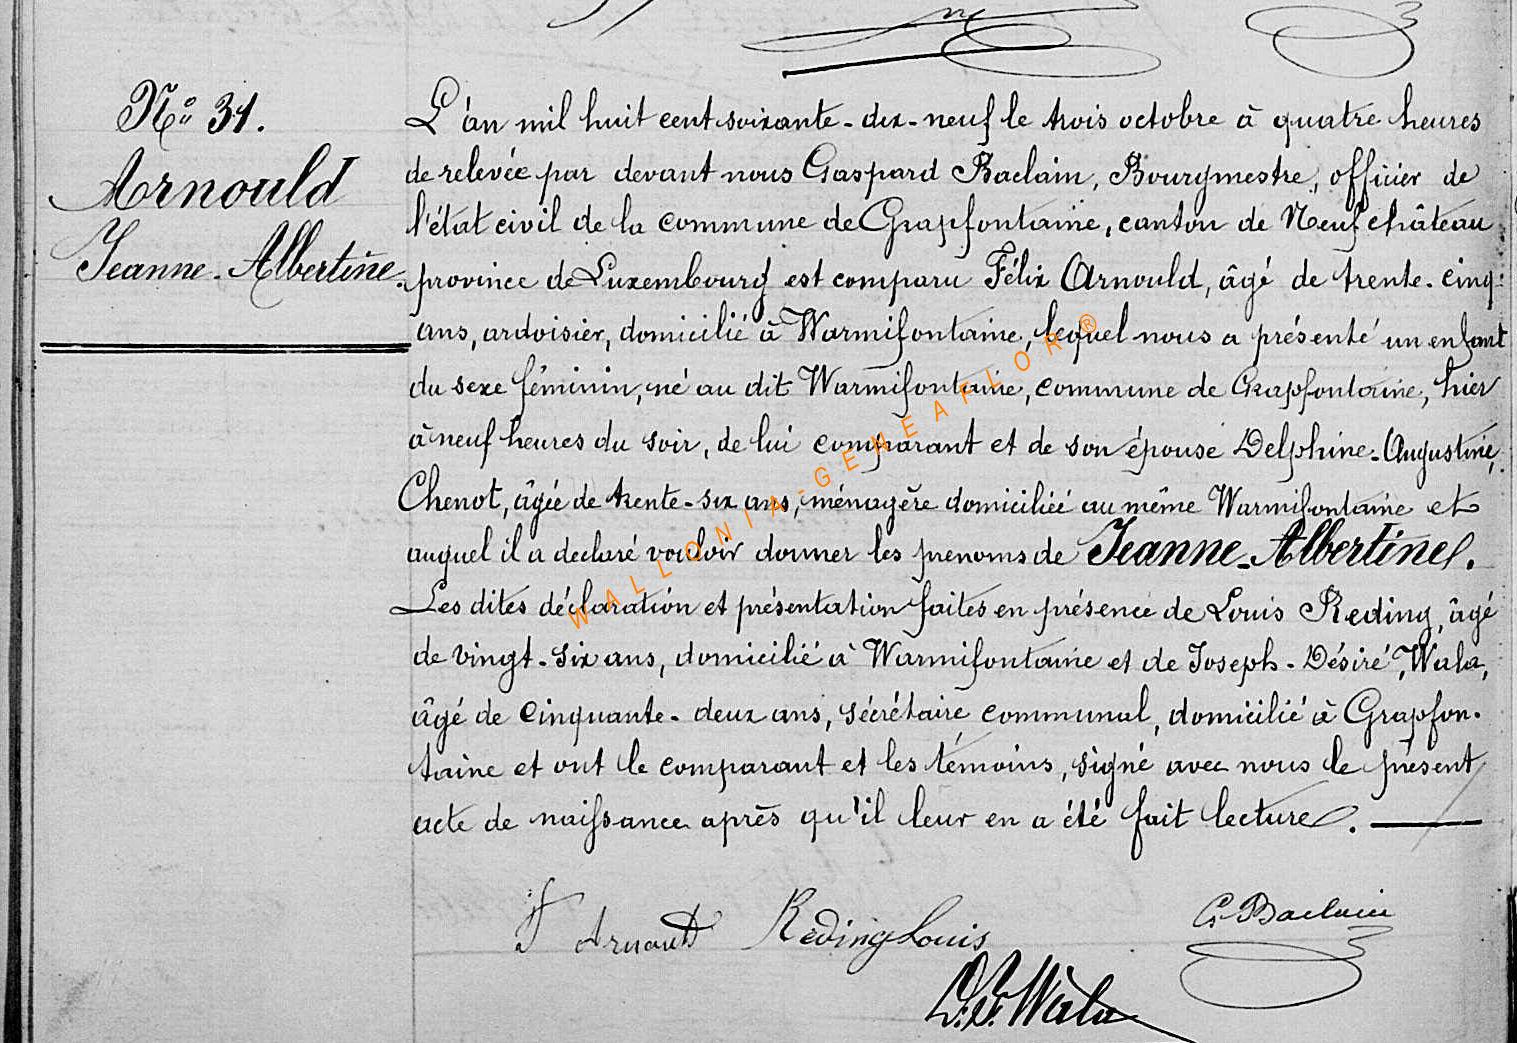 N° 31.
Arnould
Jeanne-Albertine.
L'an mil huit cent soixante-dix-neuf le trois octobre à quatre heures
de relevée par devant nous Gaspard Baclain, Bourgmestre, officier de
l'état civil de la commune de Grapfontaine, canton de Neufchâteau
province de Luxembourg est comparu Félix Arnould, âgé de trente-cinq
ans, ardoisier, domicilié à Warmifontaine, lequel nous a présenté un enfant
du sexe féminin, né au dit Warmifontaine, commune de Grapfontaine, hier
à neuf heures du soir, de lui comparant et de son épouse Delphine-Augustine,
Chenot, âgée de trente-six ans, ménagère domiciliée au même Warmifontaine et
auquel il a declaré vouloir donner les prenoms de Jeanne-Albertine.
Les dites déclaration et présentation faites en présence de Louis Reding, âgé
de vingt-six ans, domicilié à Warmifontaine et de Joseph-Désiré Wala,
âgé de cinquante-deux ans, sécrétaire communal, domicilié à Grapfon-
taine et ont le comparant et les témoins, signé avec nous le présent
acte de naissance après qu'il leur en a été fait lecture.
F Arnould Reding Louis G. Baclain
D. J. Wala
WALLONIA-GENEAFLOR®